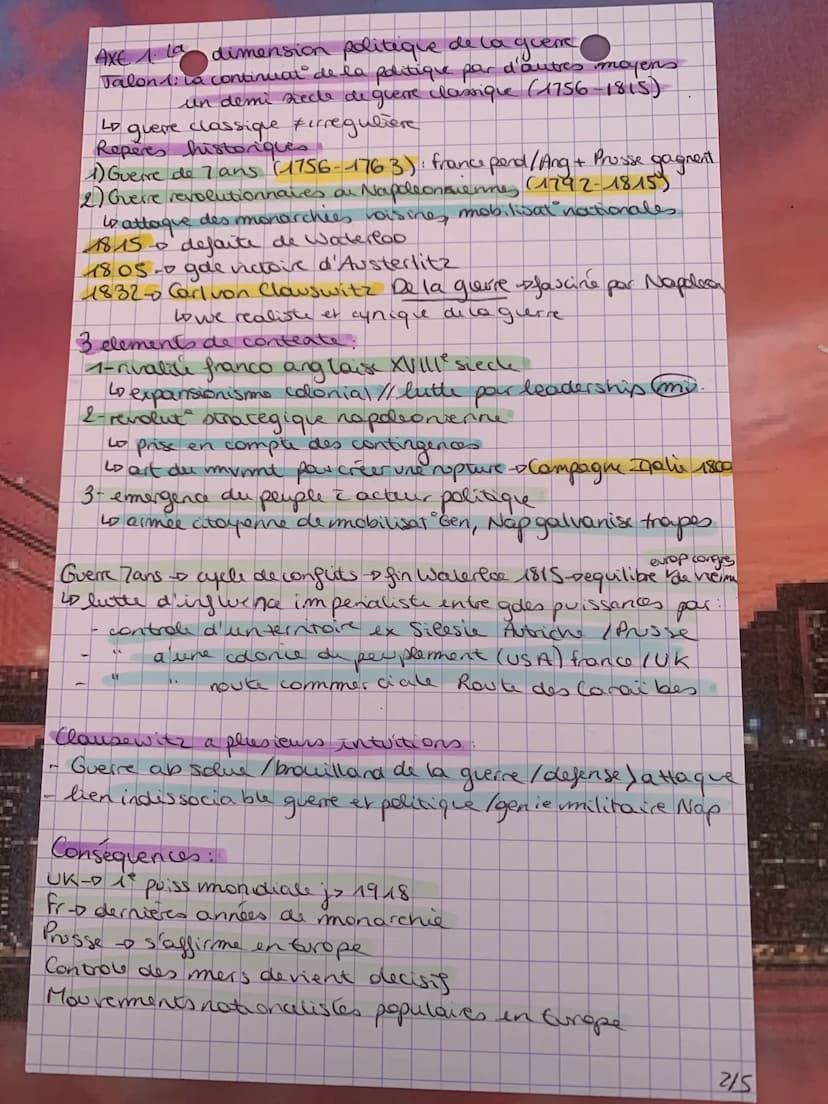 AXE 1. La dimension politique de la guerre
Jalon 1: La continuat° de la politique par d'autres moyens
un demi siecle de guerre classique (1756-1815)
↳ guerre classique ≠ irregulière
Repères historiques
1) Guerre de 7 ans (1756-1763): france perd/Ang + Prusse gagnent
2) Guerre revolutionnaires ou Napoleonniennes (1792-1815)
↳ attaque des monarchies voisines, mobilisat° nationales
1815 → defaite de Waterloo
1805 → gde victoire d'Austerlitz
1832 → Carl von Clauswitz De la guerre → fasciné par Napoleon
↳ vue realiste et cynique de la guerre
3 elements de contexte:
1- rivalité franco anglaise XVIIIe siecle
↳ expansionisme colonial // lutte pour leadership mi
2- revolut° strategique napoleonienne
↳ prise en compte des contingences
↳ art du mvmt pour créer une rupture → Campagne Italie 1800
3- emergence du peuple c̄ acteur politique
↳ armée citoyenne de mobilisat° Gen, Nap galvanise troupes
europ congres
Guerre 7ans → cycle de conflits → fin Waterloo 1815 → equilibre de vienne
↳ lutte d'influence imperialiste entre gdes puissances par:
- controle d'un territoire ex Silesie Autriche / Prusse
- " d'une colonie de peuplement (USA) france / UK
- " " route commerciale Route des Caraïbes
Clausewitz a plusieurs intuitions:
- Guerre absolue / brouillard de la guerre / defense > attaque
- lien indissociable guerre et politique / genie militaire Nap
Conséquences:
UK → 1e puiss mondiale j> 1918
Fr → dernières années de monarchie
Prusse → s'affirme en Europe
Controle des mers devient decisif
Mouvements nationalistes populaires en Europe
2/5